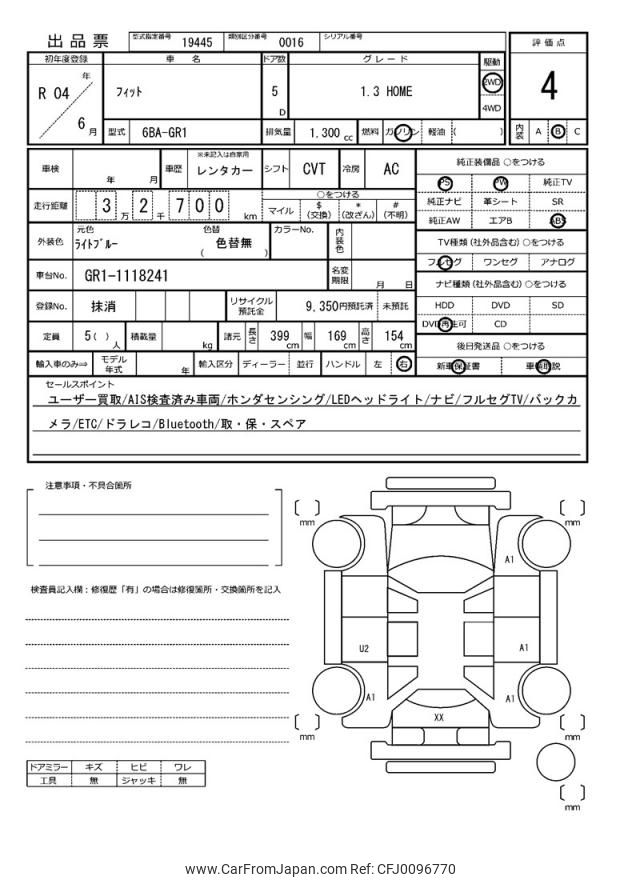 出品票 型式指定番号 19445 類別区分番号 0016 シリアル番号
評価点
4
内装 A B C
初年度登録 車 名 ドア数 グレード 駆動
R 04 年 6 月
フィット 5 D 1.3 HOME 2WD 4WD
型式 6BA-GR1 排気量 1.300 cc 燃料 ガソリン 軽油 ( )
車検 年 月 車歴 ※未記入は自家用 レンタカー シフト CVT 冷房 AC
走行距離 3 万 2 千 7 0 0 km ○をつける
マイル $ (交換) * (改ざん) # (不明)
外装色 元色 ライトブルー 色替 色替無 ( ) カラーNo. 内装色
車台No. GR1-1118241 名変期限 月 日
登録No. 抹消 リサイクル預託金 9,350円預託済 未預託
定員 5( ) 人 積載量 kg 諸元 長さ 399 cm 幅 169 cm 高さ 154 cm
輸入車のみ⇒ モデル年式 年 輸入区分 ディーラー 並行 ハンドル 左 右
純正装備品 ○をつける
PS PW 純正TV
純正ナビ 革シート SR
純正AW エアB ABS
TV種類 (社外品含む) ○をつける
フルセグ ワンセグ アナログ
ナビ種類 (社外品含む) ○をつける
HDD DVD SD
DVD再生可 CD
後日発送品 ○をつける
新車保証書 車輌取説
セールスポイント
ユーザー買取/AIS検査済み車両/ホンダセンシング/LEDヘッドライト/ナビ/フルセグTV/バックカ
メラ/ETC/ドラレコ/Bluetooth/取・保・スペア
注意事項・不具合箇所
検査員記入欄：修復歴「有」の場合は修復箇所・交換箇所を記入
ドアミラー キズ ヒビ ワレ
工具 無 ジャッキ 無
[ ] mm
[ ] mm
A1
U2
A1
A1
A1
XX
[ ] mm
[ ] mm
[ ] mm
www.CarFromJapan.com Ref: CFJ0096770